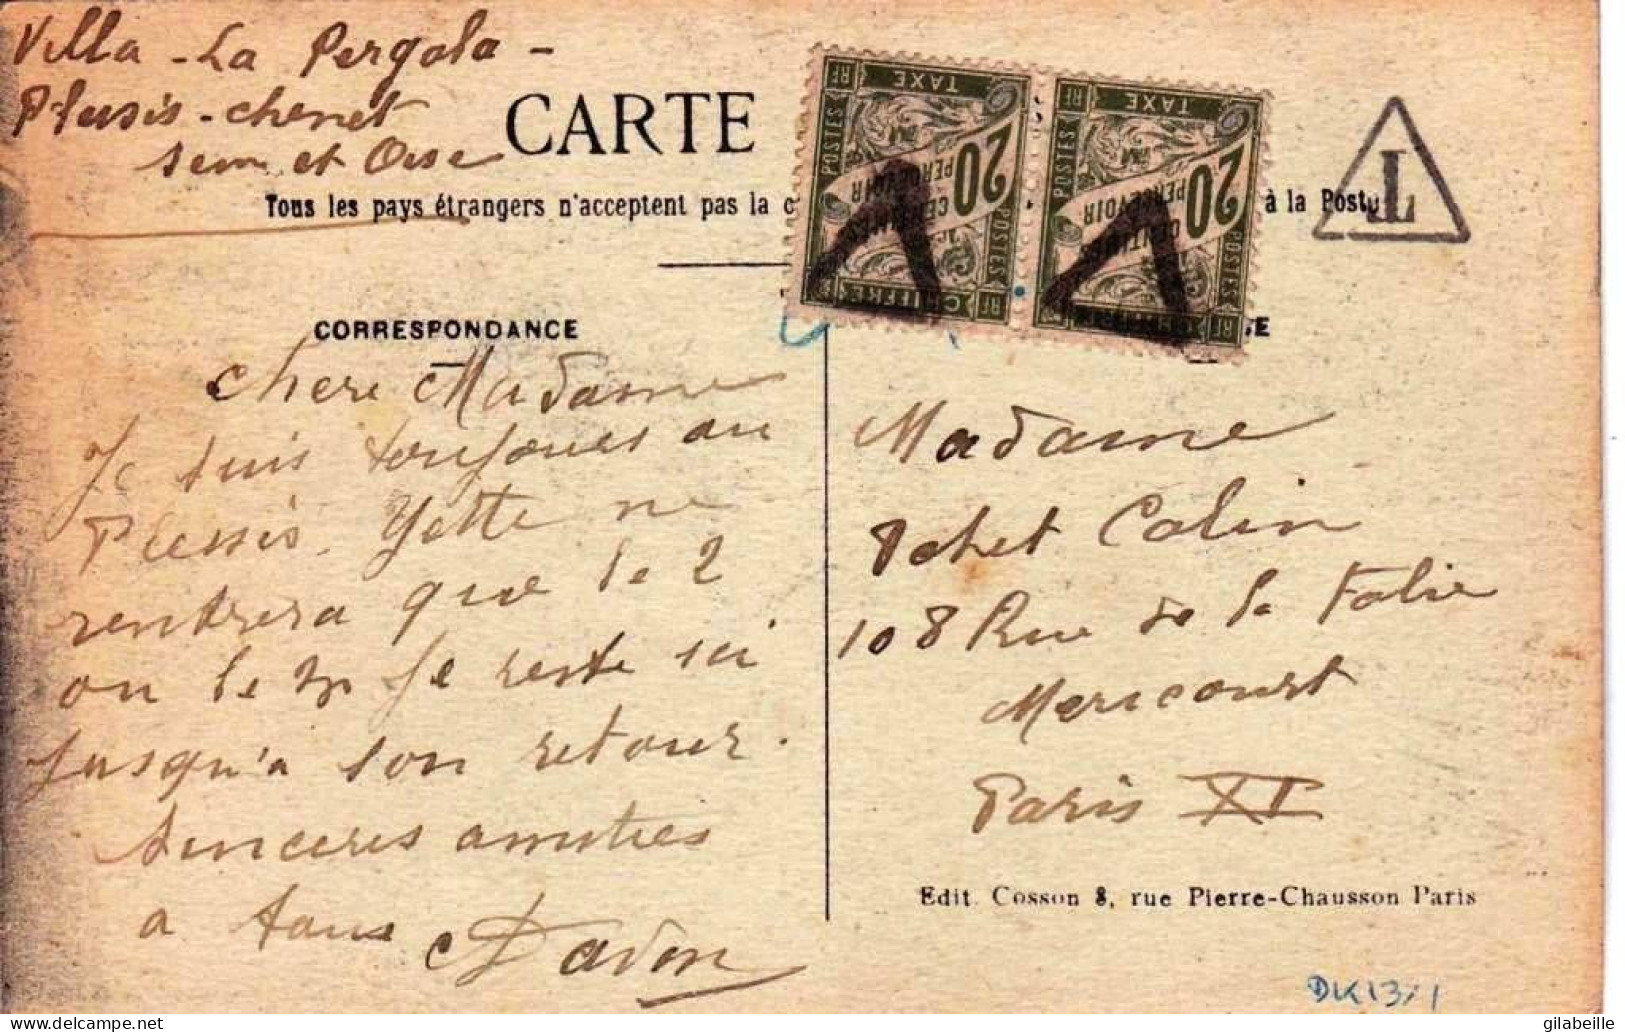 Villa - La Pergola -
Plessis - chenet
sein et Oise
CARTE
Tous les pays étrangers n'acceptent pas la c
à la Poste
T
TAXE
POSTES
RF
20
CENTIMES
PERCEVOIR
CHIFFRE
TAXE
POSTES
RF
20
CENTIMES
PERCEVOIR
CORRESPONDANCE
chere Madame
Je suis toujours au
Plessis. Yette ne
rentrera que le 2
ou le 3 Je reste ici
jusqu'a son retour.
Sinceres amities
a tous
Madame
Colin
108 Rue de la Folie
Mericourt
Paris XI
Edit. Cosson 8, rue Pierre-Chausson Paris
DK13/1
delcampe.net
gilabeille